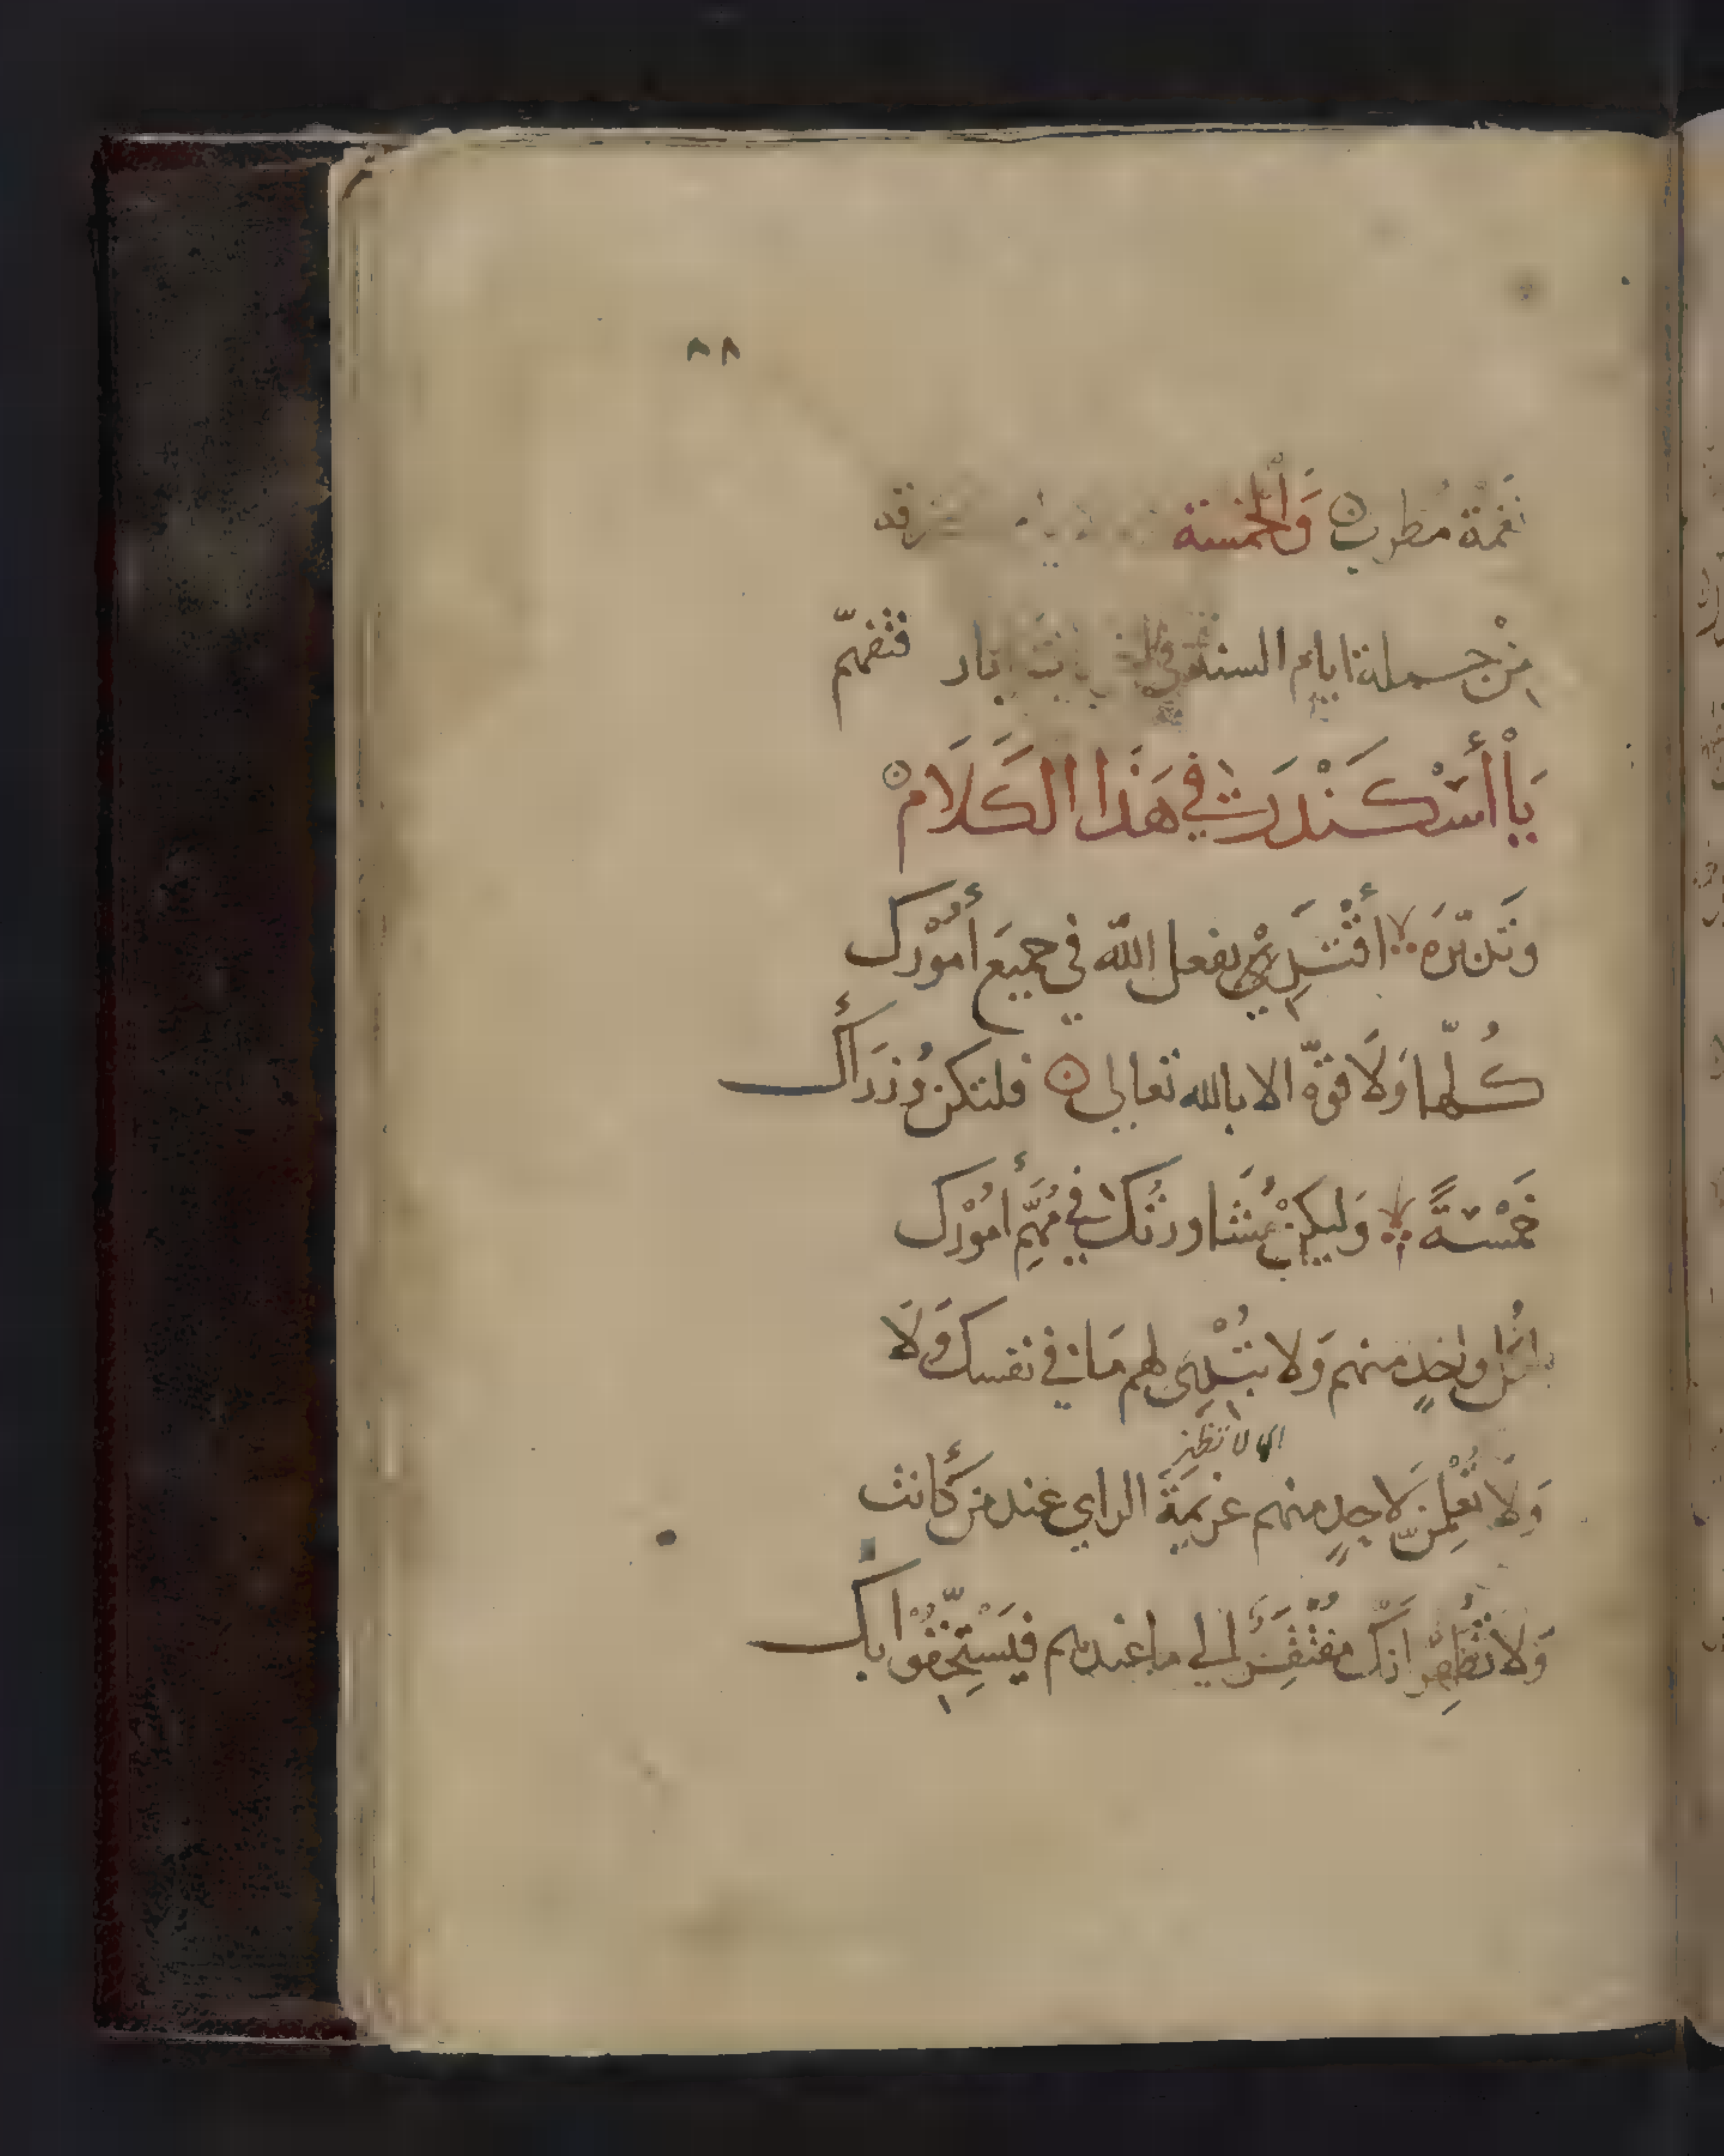 ٨٨
نغمة مطرب والخمسة وقد
من جملة ايام السنة فتفهّم
يَا أَسْكَنْدَر فِي هَذَا الكَلَام
وتدبّره بفعل الله في جميع أمُوْرك
كُلّها وَلَا قوّة الا بالله تعالى فلتكن وُزَرَاأُك
خَمْسَةً وَليكن في مُهِّم أمُوْرك
واحدٍ منهم وَلا لهم مَا في نفسك وَلَا
اى لا تظهر
وَلَا تُعْلِمنّ لاحدٍ منهم عزيمَةَ الراي عند من كَانت
وَلا تُظْهِرْ انّك مُفْتَقِرٌ الى ما عندهم فيَسْتَخِفّوْا بك